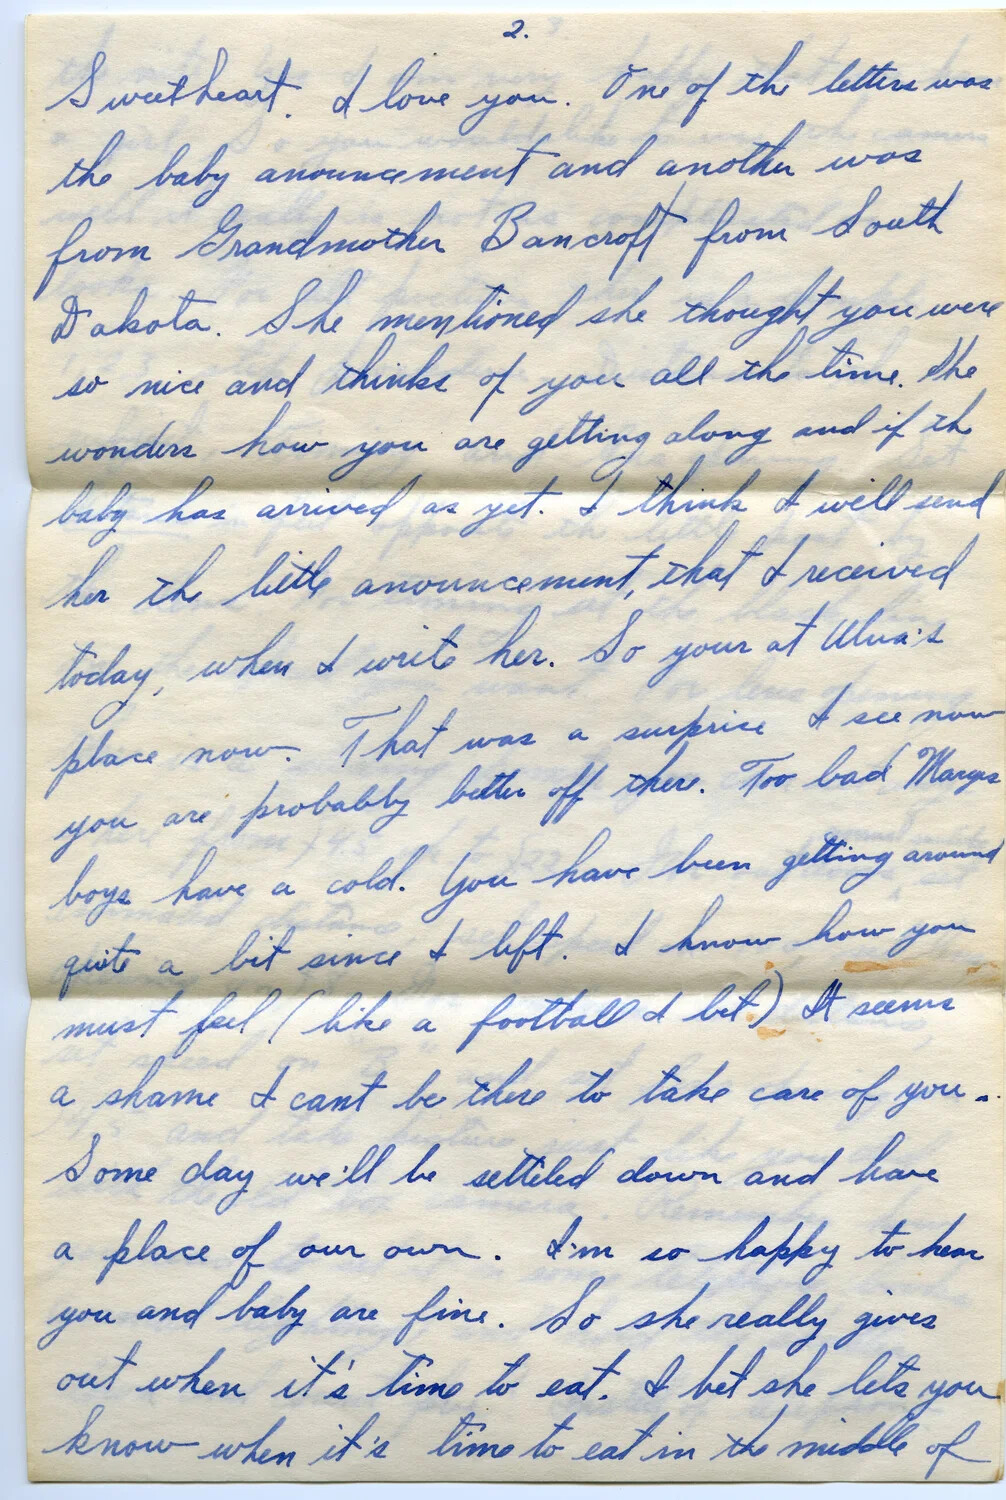 2.
Sweetheart. I love you. One of the letters was
the baby anouncement and another was
from Grandmother Bancroft from South
Dakota. She mentioned she thought you were
so nice and thinks of you all the time. She
wonders how you are getting along and if the
baby has arrived as yet. I think I will send
her the little anouncement, that I received
today, when I write her. So your at Alva's
place now. That was a surprise I see now
you are probably better off there. Too bad Marges
boys have a cold. You have been getting around
quite a bit since I left. I know how you
must feel (like a football I bet) It seems
a shame I cant be there to take care of you..
Some day we'll be setteled down and have
a place of our own. I'm so happy to hear
you and baby are fine. So she really gives
out when it's time to eat. I bet she lets you
know when it's time to eat in the middle of